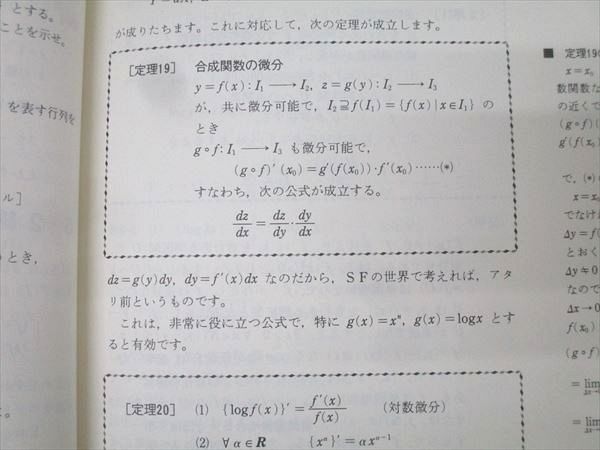 とする。
ことを示せ。
を表す行列を
ル]
うとき,
が成りたちます。これに対応して,次の定理が成立します。
[定理19] 合成関数の微分
y=f(x):I₁⟶I₂, z=g(y):I₂⟶I₃
が,共に微分可能で,I₂⊇f(I₁)={f(x)|x∈I₁}の
とき
g∘f:I₁⟶I₃ も微分可能で,
(g∘f)′(x₀)=g′(f(x₀))·f′(x₀)……(*)
すなわち,次の公式が成立する。
dz/dx=dz/dy·dy/dx
dz=g(y)dy, dy=f′(x)dx なのだから,SFの世界で考えれば,アタ
リ前というものです。
これは,非常に役に立つ公式で,特に g(x)=xⁿ, g(x)=logx とす
ると有効です。
[定理20] (1) {logf(x)}′=f′(x)/f(x) (対数微分)
(2) ∀α∈R {xᵅ}′=αxᵅ⁻¹
■ 定理19の
x=x₀
数関数な
の近くで
(g∘f)
g′(f(x₀)
で,(*)の
x=x₀
でなけ
Δy=f(
とおく
Δy≠0
なので
Δx→0
f(x₀)
(g∘f)
=lim
=lim